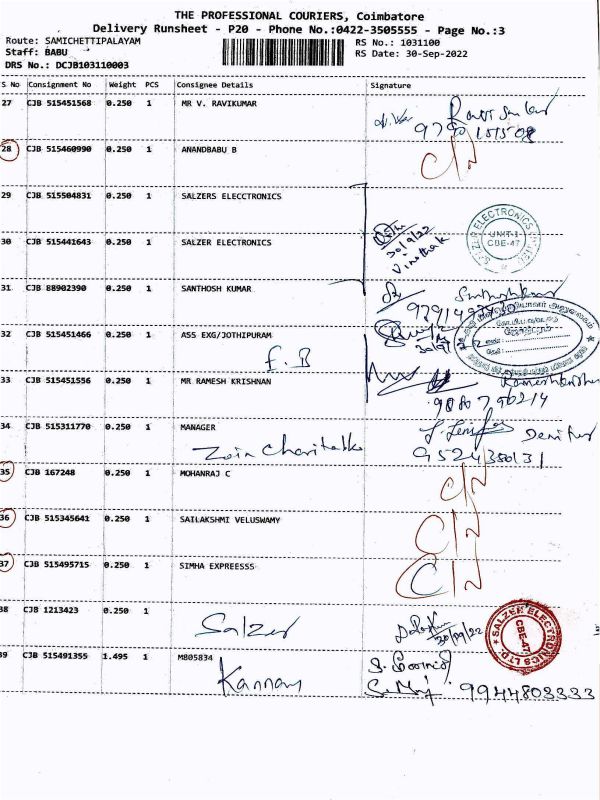 THE PROFESSIONAL COURIERS, Coimbatore
Delivery Runsheet - P20 - Phone No.:0422-3505555 - Page No.:3
Route: SAMICHETTIPALAYAM
RS No.: 1031100
Staff: BABU
RS Date: 30-Sep-2022
DRS No.: DCJB103110003
S No Consignment No Weight PCS Consignee Details Signature
27 CJB 515451568 0.250 1 MR V. RAVIKUMAR
28 CJB 515460990 0.250 1 ANANDBABU B C/N
29 CJB 515504831 0.250 1 SALZERS ELECCTRONICS
SALZER ELECTRONICS UNIT-1 CBE-47
30 CJB 515441643 0.250 1 SALZER ELECTRONICS
30/9/22
Vinothak
31 CJB 88902390 0.250 1 SANTHOSH KUMAR
32 CJB 515451466 0.250 1 ASS EXG/JOTHIPURAM
E.B
33 CJB 515451556 0.250 1 MR RAMESH KRISHNAN
34 CJB 515311770 1 MANAGER
Zoin Charitable
35 CJB 167248 0.250 1 MOHANRAJ C C/N
36 CJB 515345641 0.250 1 SAILAKSHMI VELUSWAMY C/N
37 CJB 515495715 0.250 1 SIMHA EXPREESSS C/N
38 CJB 1213423 0.250 1
Salzer 30/09/22
SALZER ELECTRONICS LTD. CBE-47
39 CJB 515491355 1.495 1 M805834
Kannan 9944803333